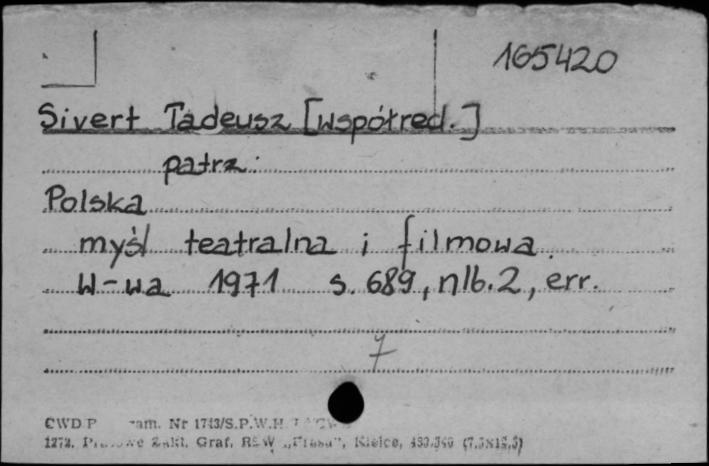 165420
Sivert Tadeusz [współred.]
patrz:
Polska
myśl teatralna i filmowa.
W-wa 1971 s. 689, nlb. 2, err.
7
CWD Nr 1743/S.P.W.H.
Zakł. Graf. RSW „Prasa", Kielce, (7,5X12,5)